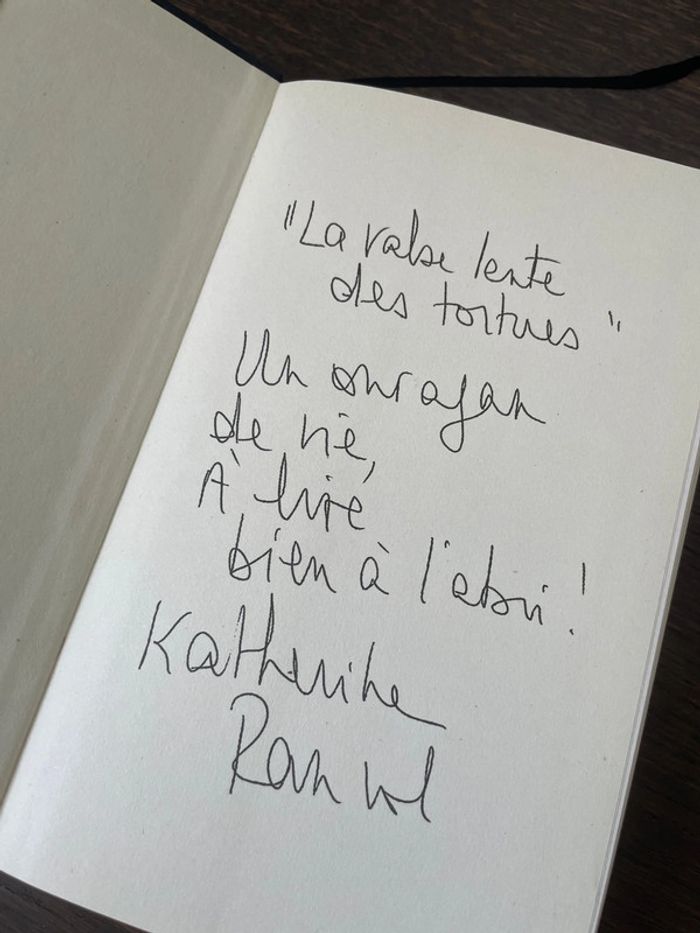 "La valse lente
des tortues"
Un ouragan
de vie,
À lire
bien à l'abri !
Katherine
Pancol